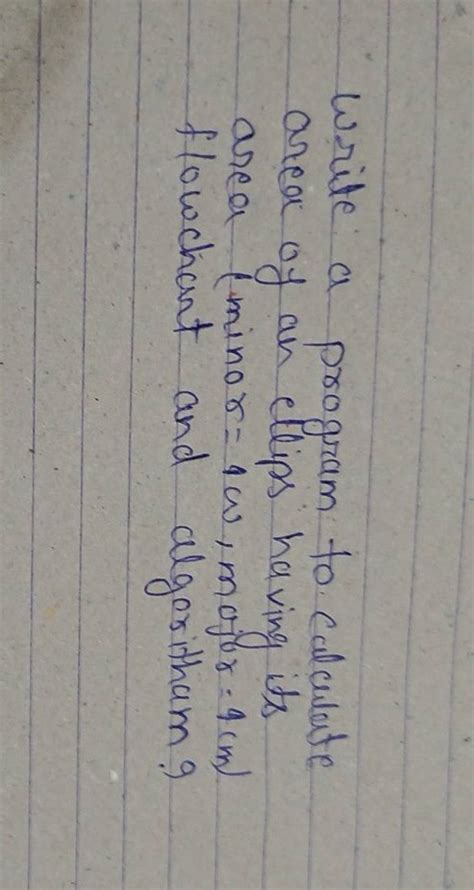 write a program to calculate
area of an ellips having its
area (minor = 4 cm, major = 9 cm)
flowchart and algoritham ?